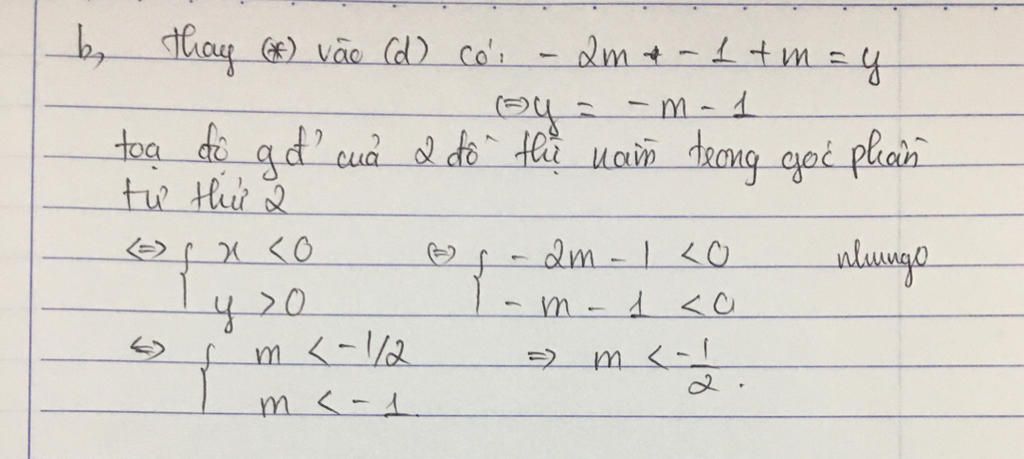 b, thay (*) vào (d) có: - 2m + - 1 + m = y
⇔ y = - m - 1
toạ độ gđ' của 2 đồ thị nằm trong góc phần
tư thứ 2
⇔ { x < 0 ⇔ { - 2m - 1 < 0 nhung0
y > 0 - m - 1 < 0
⇔ { m < -1/2 ⇒ m < -1/2 .
m < - 1